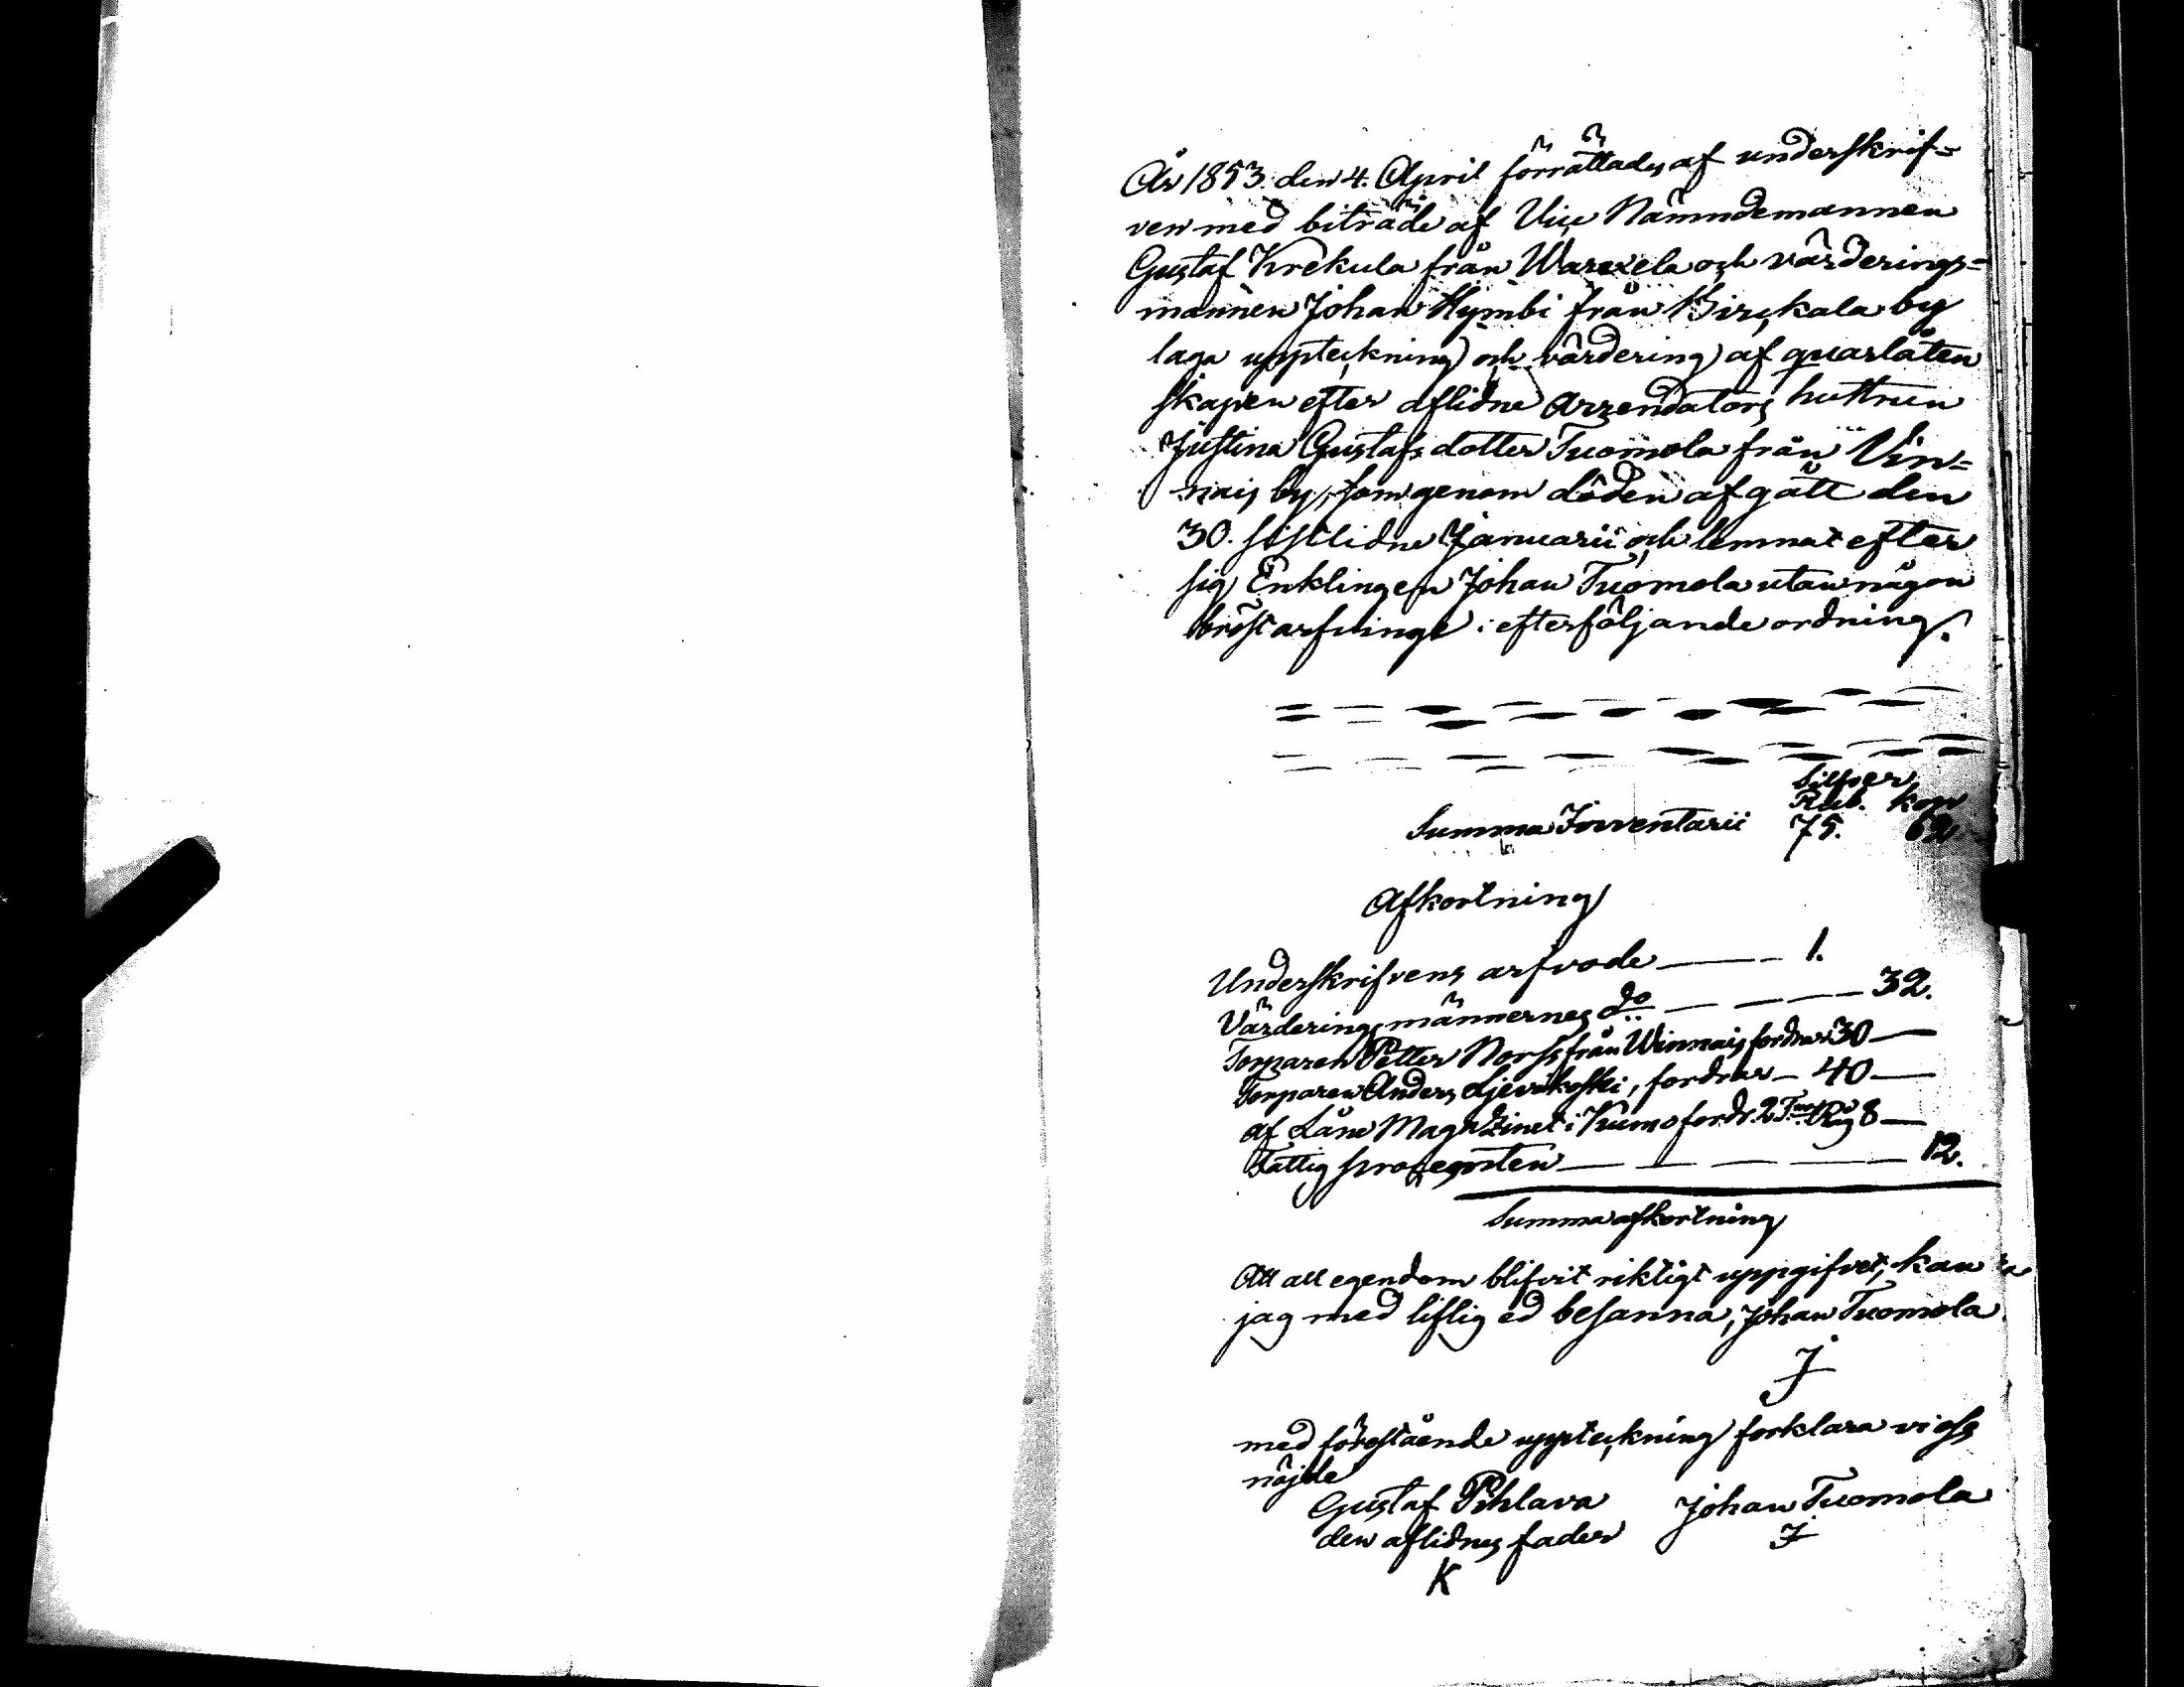 År 1853. den 4. April förrättades af underskrif=
ven med biträde af Vice Nämndemannen
Gustaf Krekula från Warexela och värderings=
mannen Johan Hymbi från Kirckala by
laga uppteckning och värdering af quarlåten
skapen efter aflidne Arrendators huttrun
Justina Gustafs dotter Tuomola från Vin=
nais by, som genom döden afgått den
30. sistlidne Januarii och lemnat efter
sig Enklingen Johan Tuomola utan någon
bröstarfvinge i efterföljande ordning.
Silfver
Rub. kop
Summa Inventarii 75. 62
Afkortning
Underskrifvens arfvode — 1.
Värderingsmännernes do — — — 32.
Torparen Petter Norss från Winnais fordrar 30 —
Torparen Anders Ljevikoski, fordrar — 40 —
af Låne Magazinet i Kumo fordr. 2 Tnor Råg 8 —
Fattig procenten — — — — — 12.
Summa afkortning
Att all egendom blifvit riktigt uppgifvet, kan
jag med liflig ed besanna, Johan Tuomola
J
med förestående uppteckning forklara vi oss
nöjde
Gustaf Pihlava Johan Tuomola
den aflidnes fader J
K